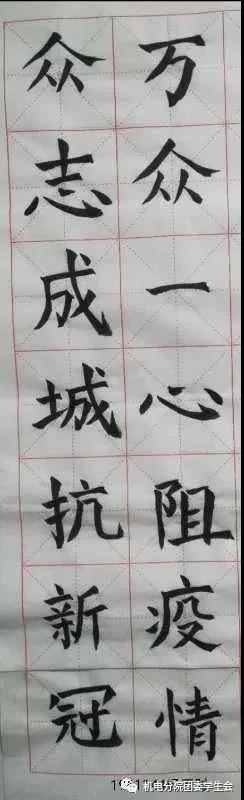 万众一心阻疫情
众志成城抗新冠
机电分院团委学生会